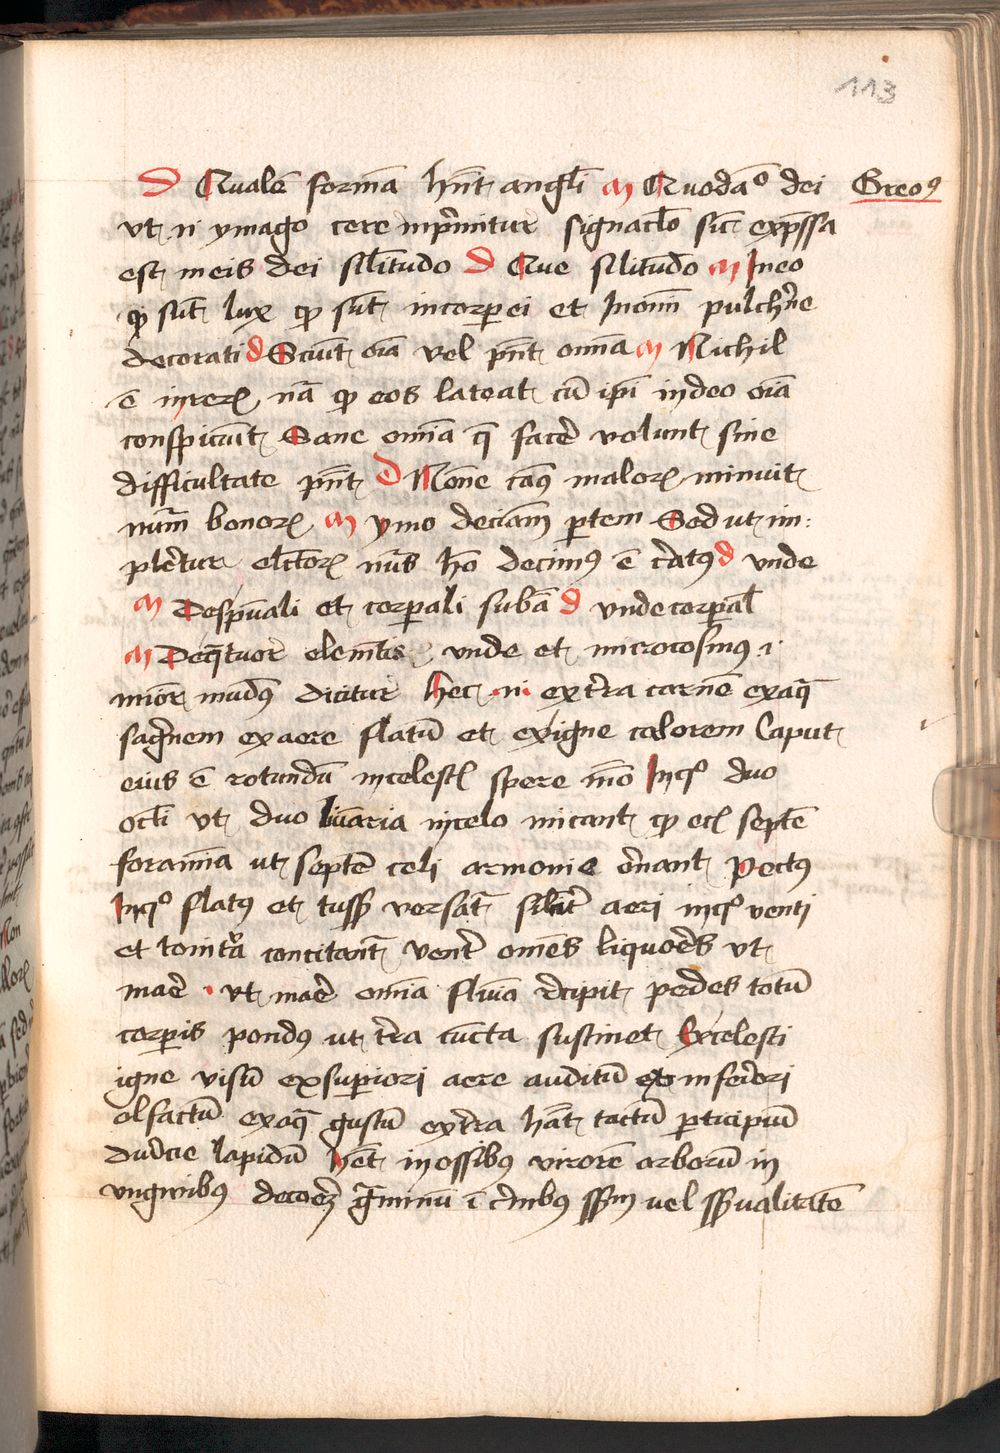 113
D Qualē formā hn̄t angl̄i M Quodaᵒ dei Greoꝰ
vt ī ymago cere inp̄mitur signac̄lo sic exp̄ssa
est in eis dei sil̄itudo D Que sil̄itudo M In eo
qꝫ sūt lux qꝫ sūt incorꝑei et In om̄i pulchrīe
decorati d Sciūt oīa vel pn̄t om̄ia M Nichil
ē in reꝝ nā qꝫ eos lateat cū ip̄i in deo oīa
conspiciūt Sane om̄ia q̄ facē volunt sine
difficultate pn̄t D Nōne casꝰ maloꝝ minuit
num̄ bonoꝝ M ymo deciam̄ ꝑtem Sed ut im:
plētur elc̄toꝝ nūs hō decimꝰ ē c̄atꝰ d vnde
M De spūali et corꝑali subā d vnde corꝑal̄
M De q̄tuor elemētis vnde et microcosmꝰ .i.
minor mūdꝰ dicitur hec ni ex t̄ra carnē ex aq̄
sagnēm ex aere flatū et ex igne calorem Caput
eius ē rotundū in celestꝭ spere mō In qᵒ duo
ocl̄i vt duo luīaria in celo micant qꝫ ec̄ septē
foramīa ut septē celi armonie ōnant Pectꝰ
In qᵒ flatꝰ et tussꝭ versāt sil̄it̄ aeri in qᵒ venti
et tonit̄a concitant̄ vent̄ omēs liquores vt
maē . vt maē om̄ia fluīa recipit pedes totū
corꝑis pondꝰ ut t̄ra cūcta sustinet Ex celesti
igne visū ex superiori aere auditū ex inferiori
olfactū ex aq̄ gustū ex t̄ra hāt tactū ꝑticipiū
duricie lapidū het in ossibꝰ virorē arborū in
vngwibꝰ decorē g̅minū ī crinibꝰ sp̄m vel sp̄ualitatē